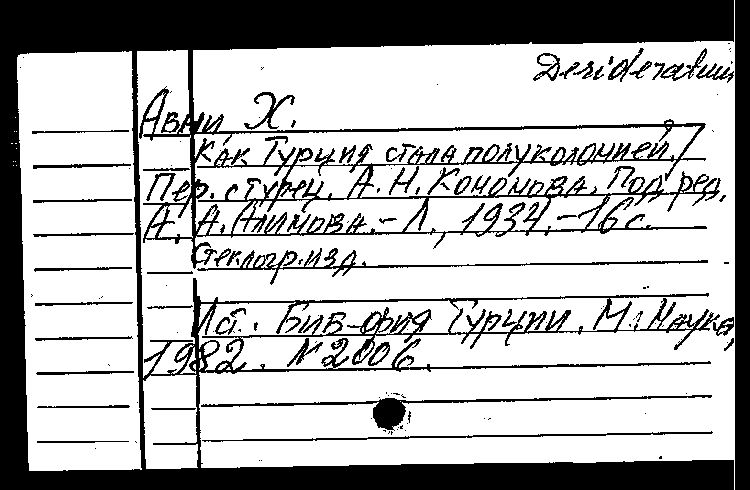 Desideratum
Авни, Х.
Как Турция стала полуколонией /
Пер. с турец. А. Н. Кононова. Под ред.
А. А. Алимова. - Л., 1934. - 16 с.
Стеклогр. изд.
Ист.: Биб-фия Турции. М.: Наука,
1982. N 2006.